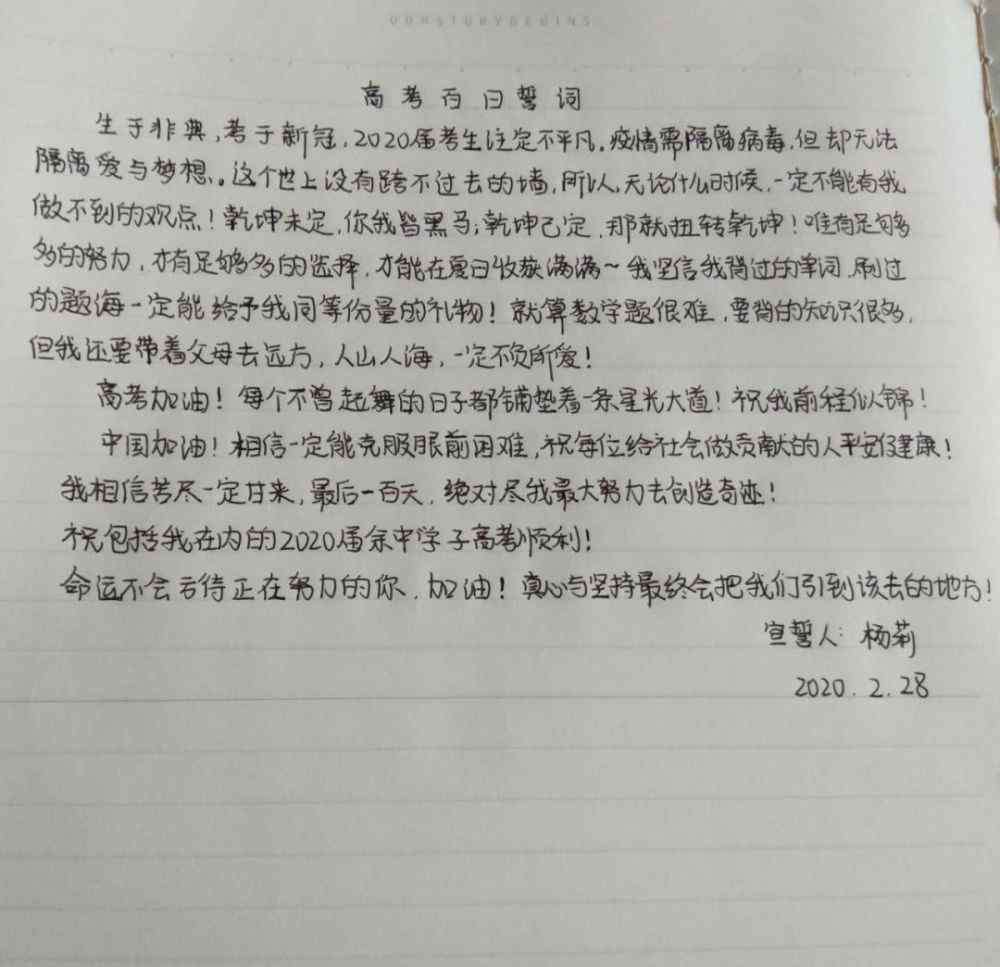 OURSTORYBEGINS
高考百日誓词
生于非典，考于新冠，2020届考生注定不平凡。疫情需隔离病毒，但却无法
隔离爱与梦想。这个世上没有跨不过去的墙，所以，无论什么时候，一定不能有我
做不到的观点！乾坤未定，你我皆黑马；乾坤已定，那就扭转乾坤！唯有足够
多的努力，才有足够多的选择，才能在夏日收获满满~我坚信我背过的单词，刷过
的题海一定能给予我同等份量的礼物！就算数学题很难，要背的知识很多，
但我还要带着父母去远方，人山人海，一定不负所爱！
高考加油！每个不曾起舞的日子都铺垫着一条星光大道！祝我前程似锦！
中国加油！相信一定能克服眼前困难，祝每位给社会做贡献的人平安健康！
我相信苦尽一定甘来，最后一百天，绝对尽我最大努力去创造奇迹！
祝包括我在内的2020届余中学子高考顺利！
命运不会亏待正在努力的你，加油！真心与坚持最终会把我们引到该去的地方！
宣誓人：杨莉
2020.2.28